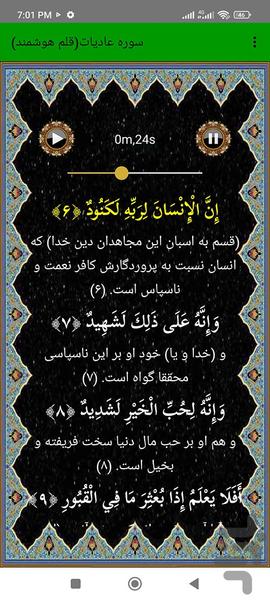 7:01 PM
4G
62
سوره عادیات(قلم هوشمند)
0m,24s
إِنَّ الْإِنْسَانَ لِرَبِّهِ لَكَنُودٌ ﴿۶﴾
(قسم به اسبان این مجاهدان دین خدا) که
انسان نسبت به پروردگارش کافر نعمت و
ناسپاس است. (۶)
وَإِنَّهُ عَلَى ذَلِكَ لَشَهِيدٌ ﴿۷﴾
و (خدا و یا) خود او بر این ناسپاسی
محققا گواه است. (۷)
وَإِنَّهُ لِحُبِّ الْخَيْرِ لَشَدِيدٌ ﴿۸﴾
و هم او بر حب مال دنیا سخت فریفته و
بخیل است. (۸)
أَفَلَا يَعْلَمُ إِذَا بُعْثِرَ مَا فِي الْقُبُورِ ﴿۹﴾